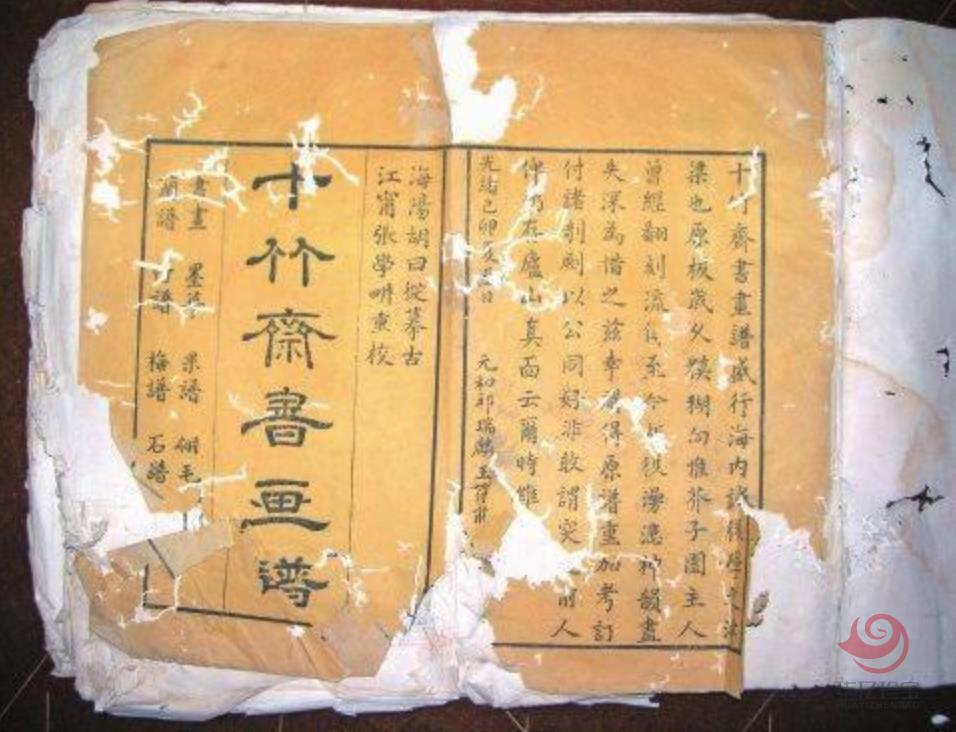 十竹齋書畫譜盛行海内誠後學之津
梁也原板歲久糢糊向惟芥子園主人
曾經翻刻流傳至今板復漫漶神韻盡
失深為惜之兹幸得原譜重加考訂
付諸剞劂以公同好非敢謂突前人
俾乃廬山真面云爾時維
光緒己卯
元和邱瑞麟玉
海陽胡曰從摹古
江甯張學畊重校
十竹齋書画譜
書畫 墨 果譜 翎毛
蘭譜 竹譜 梅譜 石譜